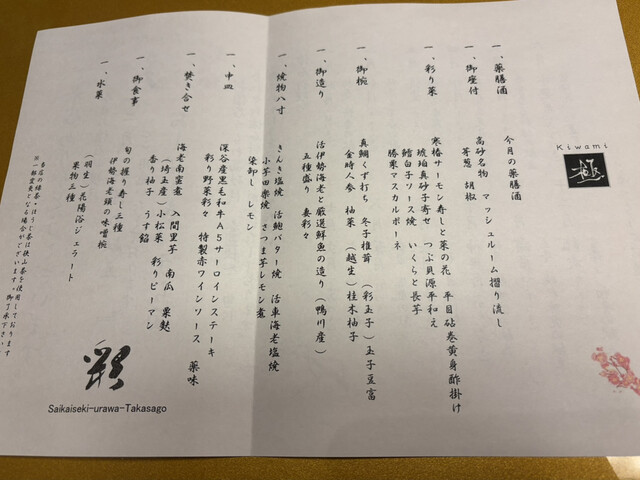 Kiwami
極
一、薬膳酒
今月の薬膳酒
一、御座付
高砂名物 マッシュルーム摺り流し
芽葱 胡椒
一、彩り菜
寒椿サーモン寿しと菜の花 平目砧巻黄身酢掛け
琥珀真砂子寄せ つぶ貝源平和え
鱈白子ソース焼 いくらと長芋
勝栗マスカルポーネ
一、御椀
真鯛くず打ち 冬子椎茸 (彩玉子)玉子豆富
金時人参 柚菜 (越生)桂木柚子
一、御造り
活伊勢海老と厳選鮮魚の造り(鴨川産)
五種盛り 妻彩々
一、焼物八寸
きんき塩焼 活鮑バター焼 活車海老塩焼
小芋田楽焼 さつま芋レモン煮
染卸し レモン
一、中皿
深谷産黒毛和牛A5サーロインステーキ
彩り野菜彩々 特製赤ワインソース 薬味
一、焚き合せ
海老南蛮煮 入間里芋 南瓜 粟麩
(埼玉産)小松菜 彩りピーマン
香り柚子 うす餡
一、御食事
旬の握り寿し三種
伊勢海老頭の味噌椀
一、水菓
(羽生)花陽浴ジェラート
果物三種
*当店の緑茶・ほうじ茶は狭山茶を使用しております
※一部変更となる場合がございます。御了承下さい。
彩
Saikaiseki-urawa-Takasago